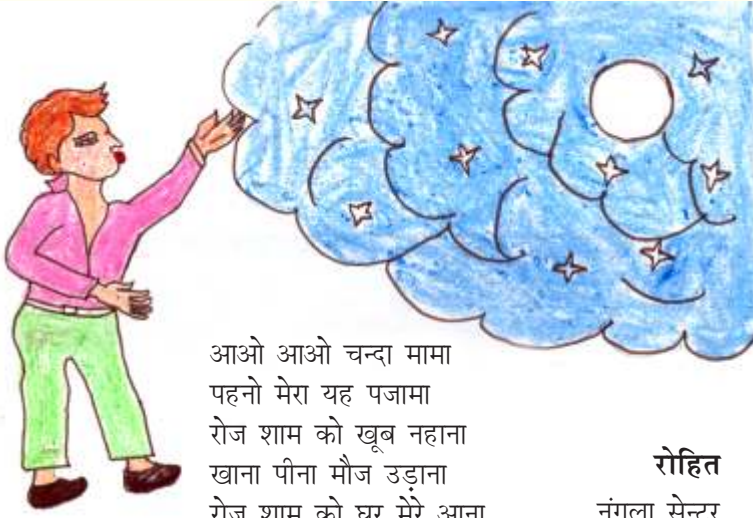 आओ आओ चन्दा मामा
पहनो मेरा यह पजामा
रोज शाम को खूब नहाना
खाना पीना मौज उड़ाना
रोज शाम को घर मेरे आना
रोहित
नंगला सेन्टर